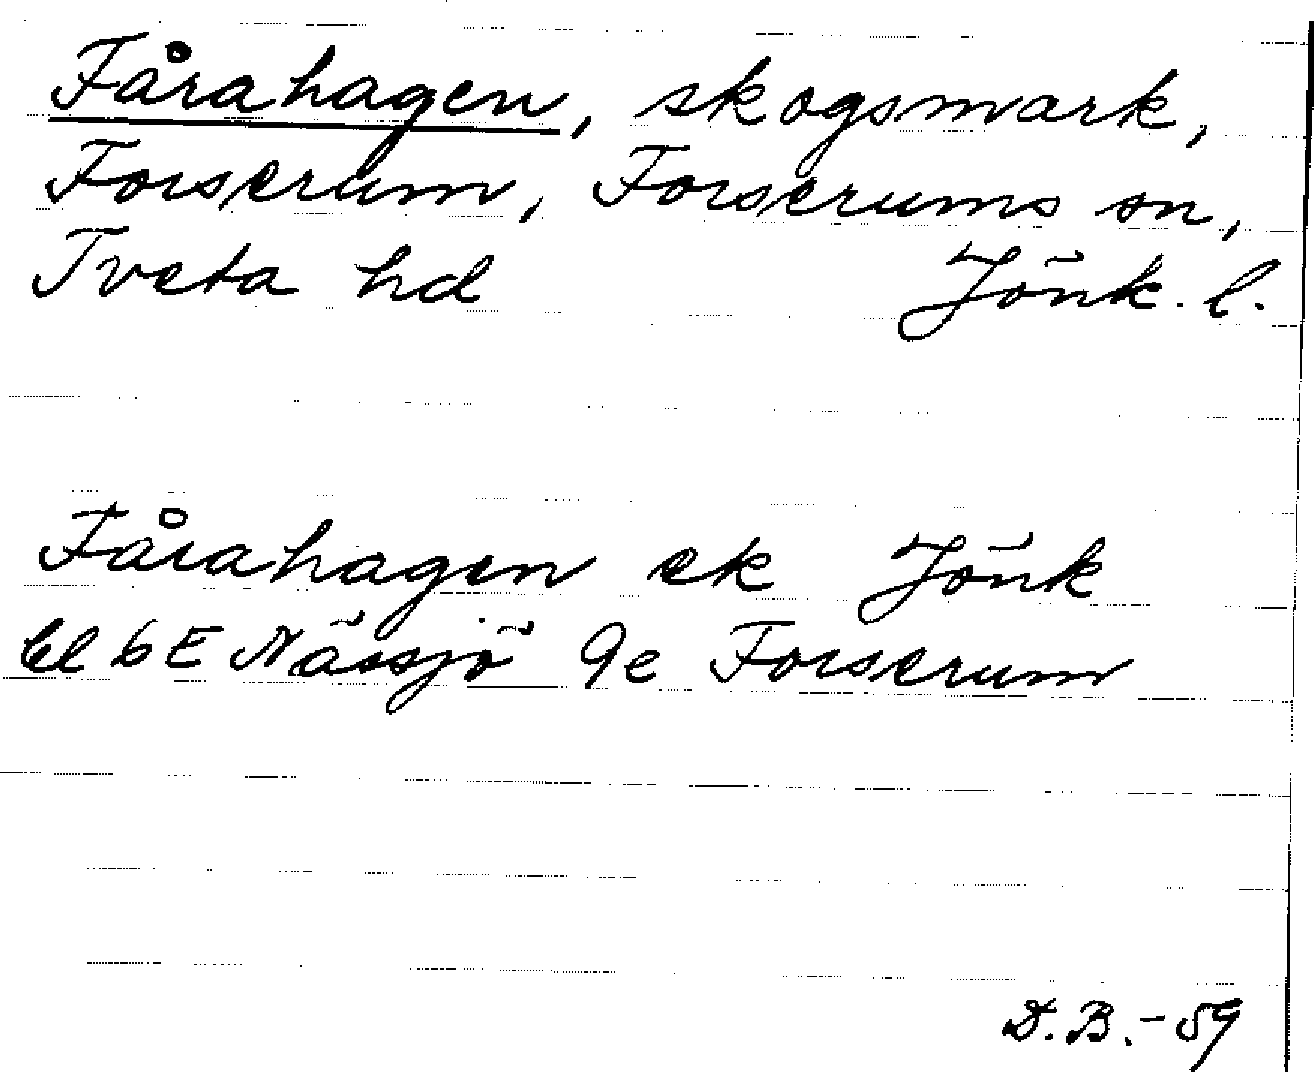 Fårahagen, skogsmark,
Forserum, Forserums sn,
Tveta hd Jönk. l.
Fårahagen ek Jönk
bl 6E Nässjö 9e Forserum
D.B.-59